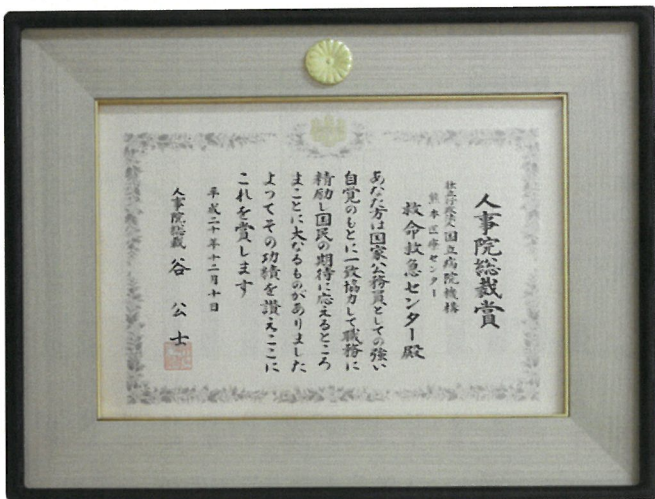 人事院総裁賞
独立行政法人国立病院機構
熊本医療センター
救命救急センター殿
あなた方は国家公務員としての強い
自覚のもとに一致協力して職務に
精励し国民の期待に応えるところ
まことに大なるものがありました
よってその功績を讃えここに
これを賞します
平成二十年十二月十日
人事院総裁 谷 公士